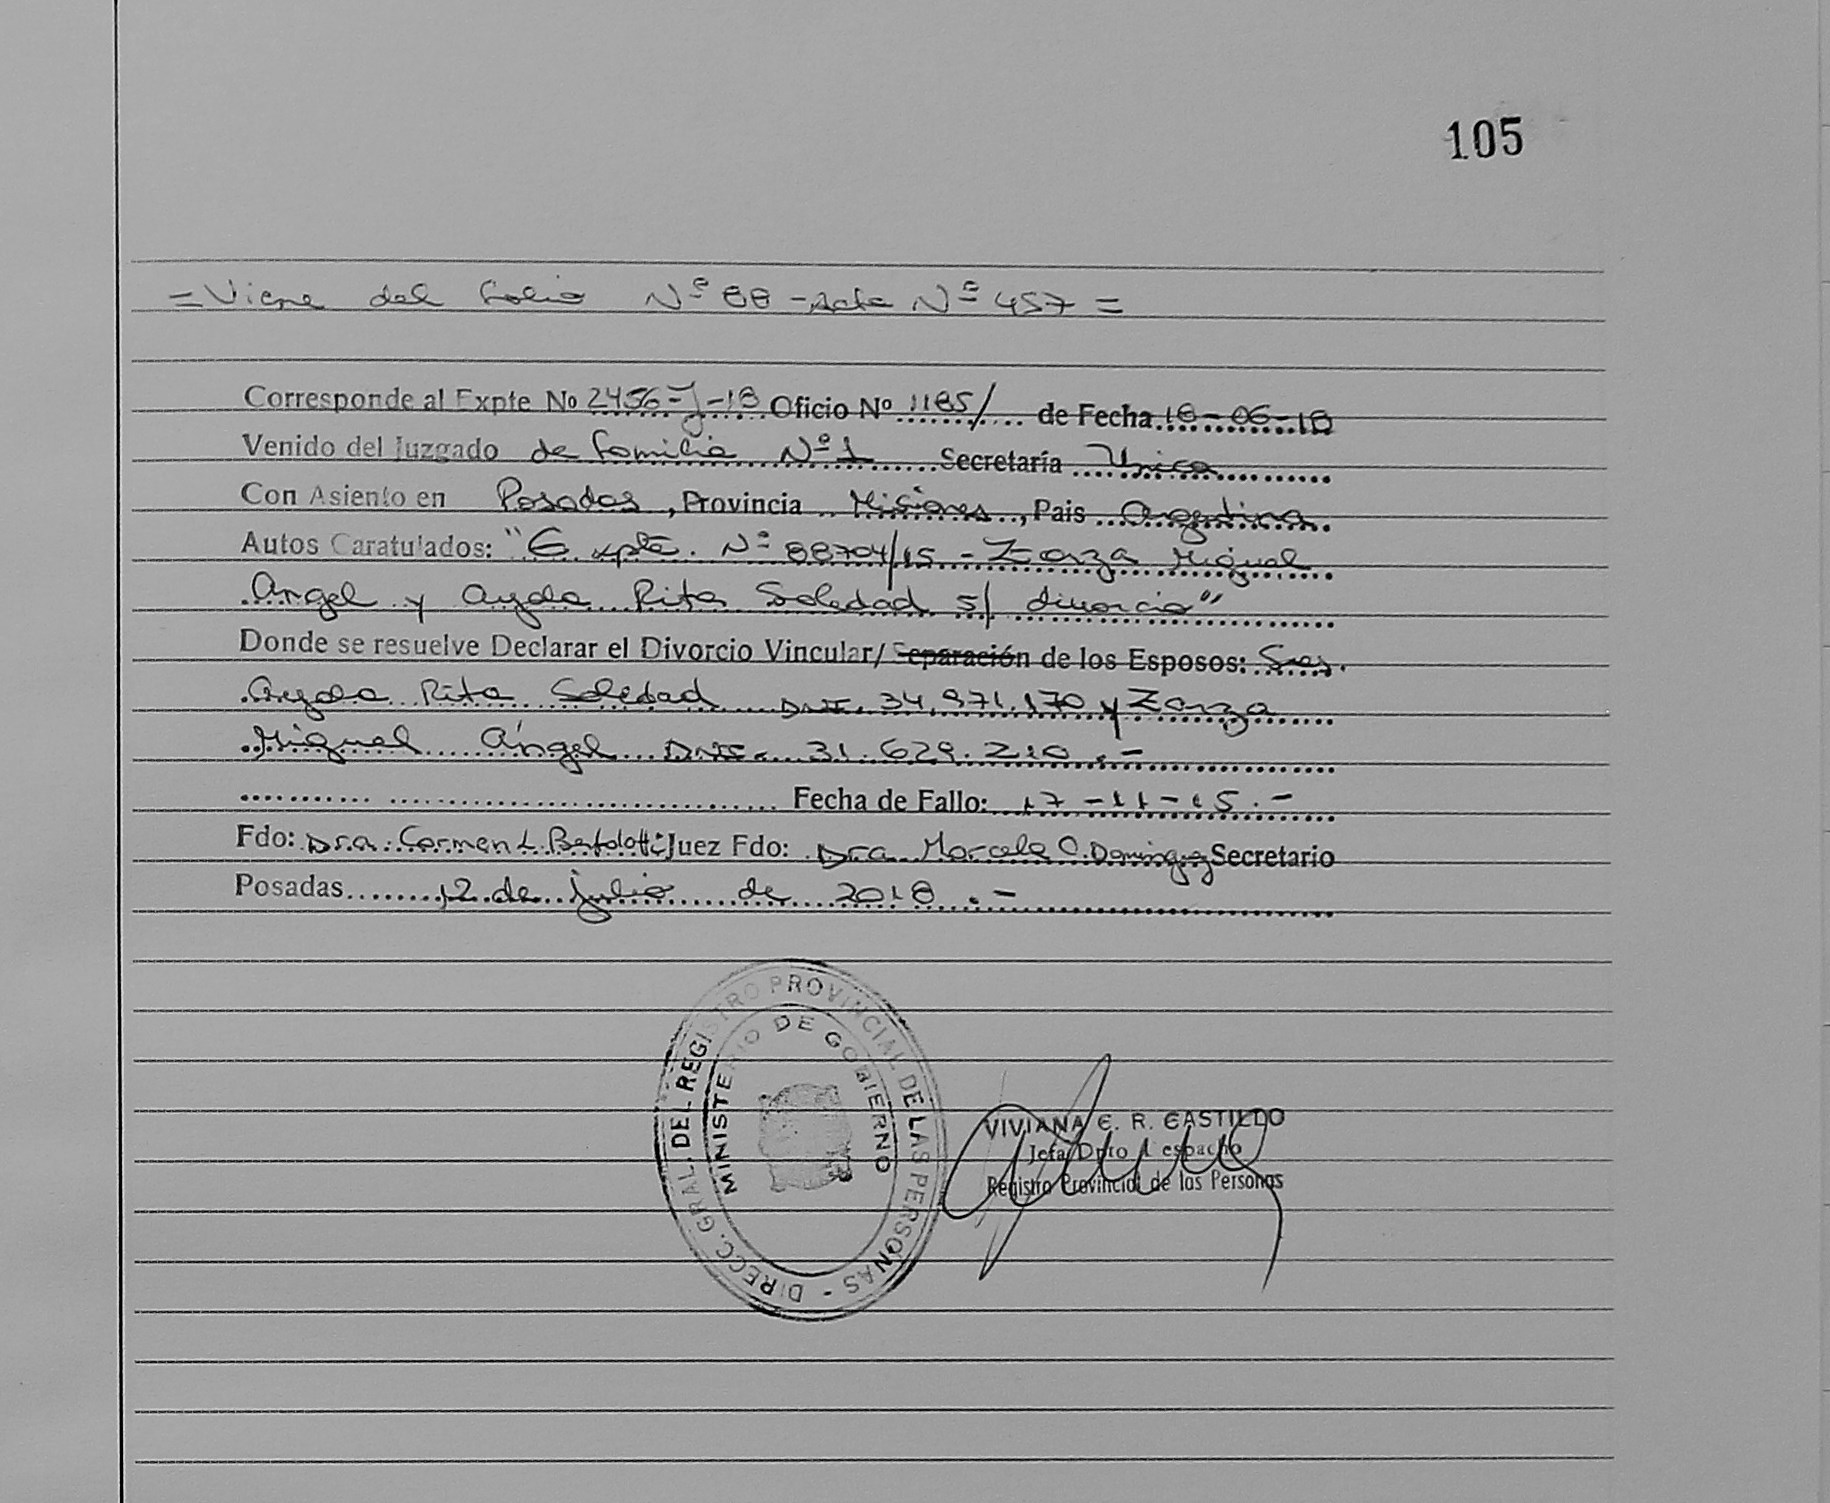 105
= Viene del folio Nº 88 - Acta Nº 457 =
Corresponde al Expte No 2456-J-18 Oficio Nº 1185/ de Fecha 18-06-18
Venido del Juzgado de Familia Nº 1 Secretaría Unica
Con Asiento en Posadas, Provincia Misiones, Pais Argentina.
Autos Caratulados: "Expte. Nº 88704/15 - Zarza Miguel
Angel y Ayala Rita Soledad s/ divorcio"
Donde se resuelve Declarar el Divorcio Vincular/ Separación de los Esposos: Sres.
Ayala Rita Soledad DNI. 34.971.170 y Zarza
Miguel Ángel DNI. 31.629.210.-
Fecha de Fallo: 17-11-15.-
Fdo: Dra. Carmen L. Bertolotti Juez Fdo: Dra Marcela C. Dominguez Secretario
Posadas 12 de julio de 2018.-
DIRECC. GRAL. DEL REGISTRO PROVINCIAL DE LAS PERSONAS -
MINISTERIO DE GOBIERNO
VIVIANA E. R. CASTILLO
Jefa Dpto Despacho
Registro Provincial de las Personas